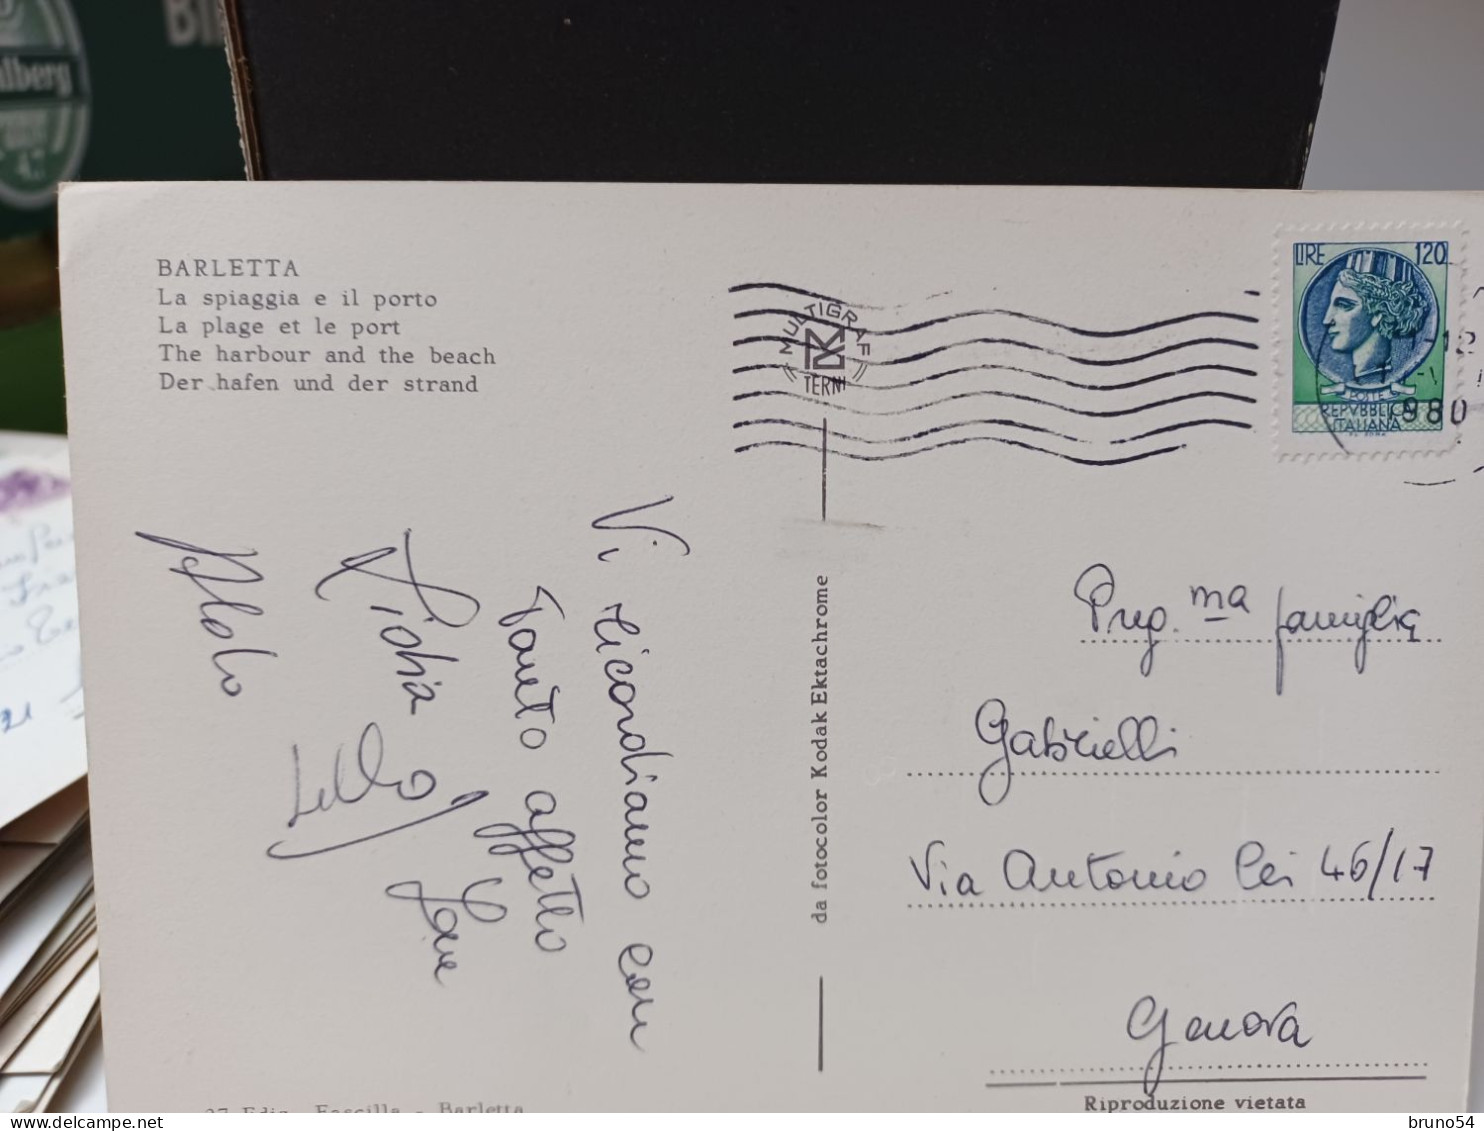 BARLETTA
La spiaggia e il porto
La plage et le port
The harbour and the beach
Der hafen und der strand
MULTIGRAF
TERNI
LIRE 120
POSTE
REPVBBLICA
ITALIANA
1980
Vi ricordiamo con
tanto affetto
Lello
da fotocolor Kodak Ektachrome
Preg.ma famiglia
Gabrielli
Via Antonio Cei 46/17
Genova
Riproduzione vietata
Barletta
lberg
bruno54